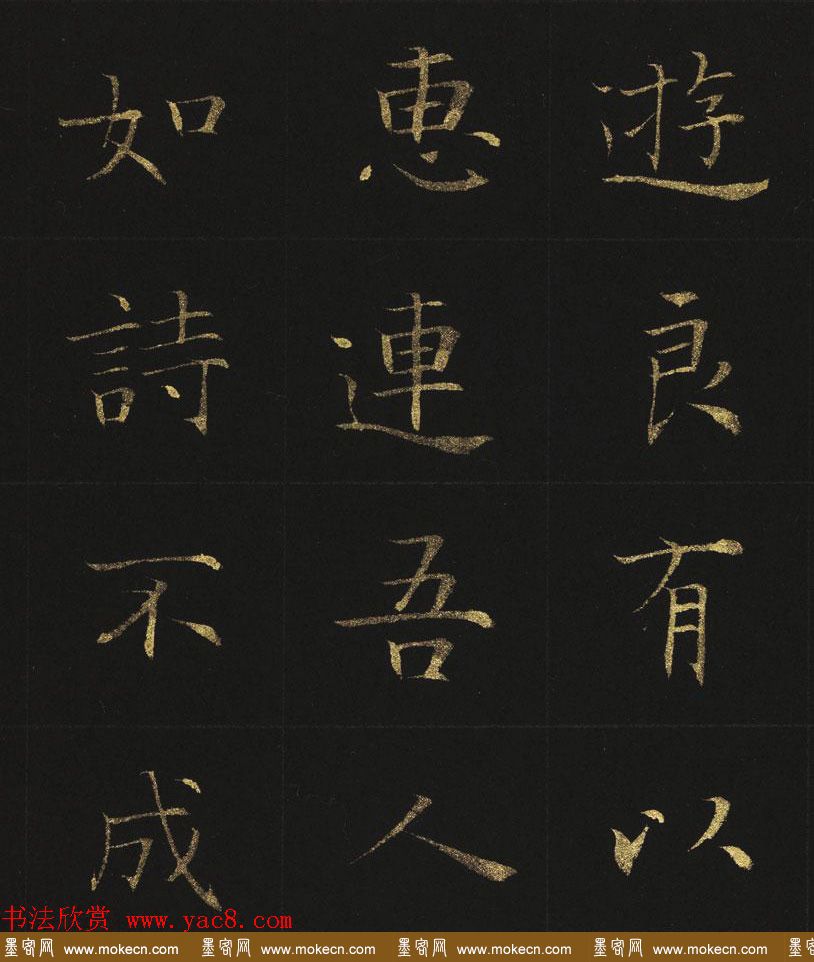 遊良有以
惠連吾人
如詩不成
书法欣赏 www.yac8.com
墨客网 www.mokecn.com 墨客网 www.mokecn.com 墨客网 www.mokecn.com 墨客网 www.mokecn.com